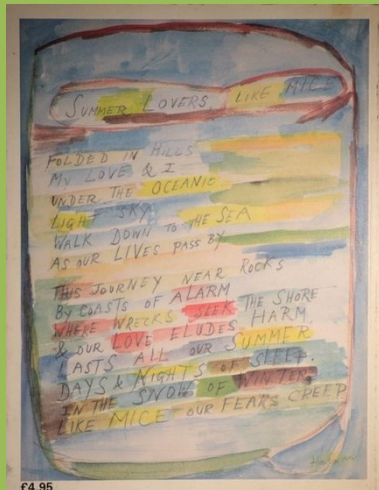 SUMMER LOVERS, LIKE MICE
FOLDED IN HILLS
MY LOVE & I
UNDER THE OCEANIC
LIGHT SKY
WALK DOWN TO THE SEA
AS OUR LIVES PASS BY
THIS JOURNEY NEAR ROCKS
BY COASTS OF ALARM
WHERE WRECKS SEEK THE SHORE
& OUR LOVE ELUDES HARM,
LASTS ALL OUR SUMMER
DAYS & NIGHTS OF SLEEP.
IN THE SNOW OF WINTER
LIKE MICE OUR FEARS CREEP
£4.95